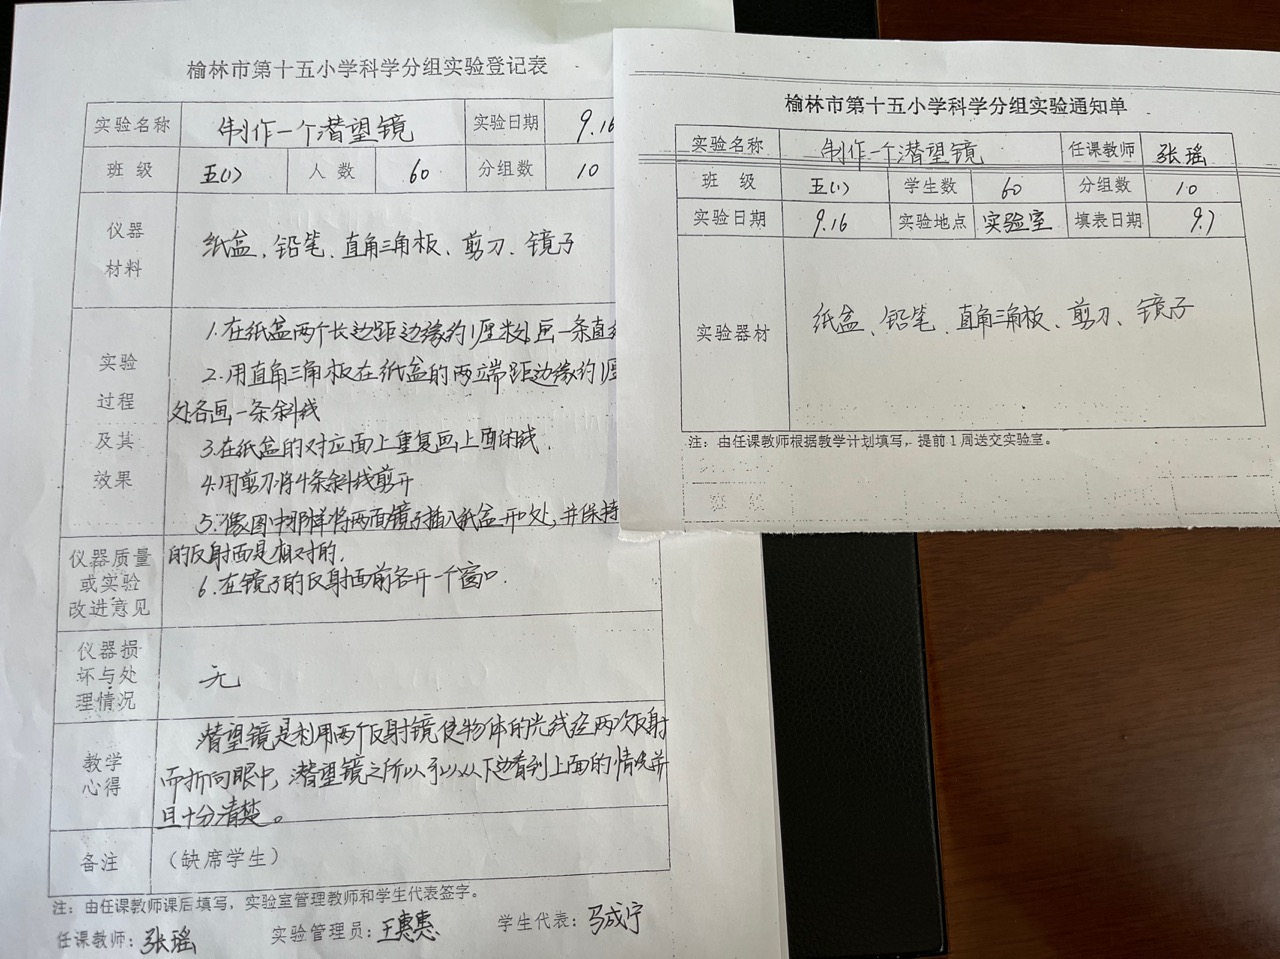 榆林市第十五小学科学分组实验登记表
实验名称 制作一个潜望镜 实验日期 9.16
班 级 五(1) 人 数 60 分组数 10
仪器
材料
纸盒、铅笔、直角三角板、剪刀、镜子
实验
过程
及其
效果
1.在纸盒两个长边距边缘约1厘米处画一条直
2.用直角三角板在纸盒的两端距边缘约1厘
处各画一条斜线
3.在纸盒的对应面上重复画上面的线.
4.用剪刀将4条斜线剪开
5.像图中那样将两面镜子插入纸盒开口处,并保持
的反射面是相对的.
6.在镜子的反射面前各开一个窗口.
仪器质量
或实验
改进意见
仪器损
坏与处
理情况
无
教学
心得
潜望镜是利用两个反射镜使物体的光线经两次反射
而折向眼中,潜望镜之所以可以从下边看到上面的情况并
且十分清楚。
备注 （缺席学生）
注：由任课教师课后填写，实验室管理教师和学生代表签字。
任课教师：张瑶 实验管理员：王惠惠 学生代表：马成宁
榆林市第十五小学科学分组实验通知单
实验名称 制作一个潜望镜 任课教师 张瑶
班 级 五(1) 学生数 60 分组数 10
实验日期 9.16 实验地点 实验室 填表日期 9.7
实验器材 纸盒、铅笔、直角三角板、剪刀、镜子
注：由任课教师根据教学计划填写，提前1周送交实验室。